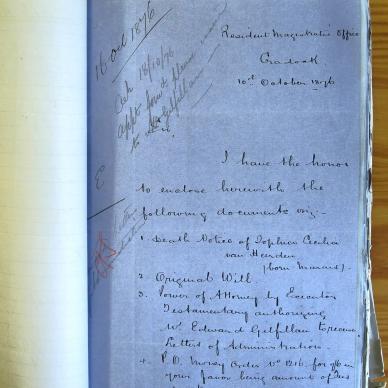 16 Oct 1876
Ack 16/10/76
Resident Magistrates Office
Cradock
10th October 1876
Sir,
I have the honor
to enclose herewith the
following documents viz:-
1. Death Notice of Sophia Cecilia
van Heerden
(born Marais).
2. Original Will
3. Power of Attorney by Executor
Testamentary authorizing
Mr Edward Gilfillan to receive
Letters of Administration.
4. P.O. Money Order No 1216 for
your favor being amount of